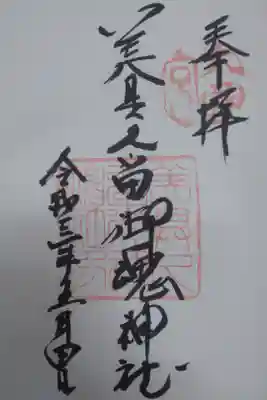 奉拝
美具久留御魂神社
令和三年五月四日